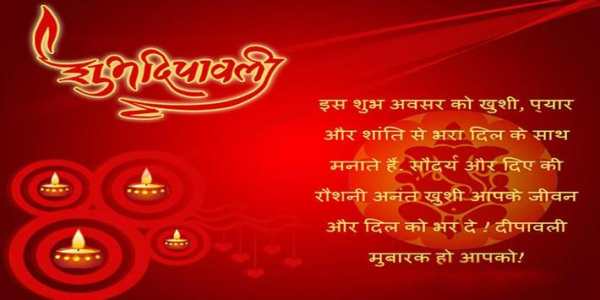 शुभ दिपावली
इस शुभ अवसर को खुशी, प्यार
और शांति से भरा दिल के साथ
मनाते हैं. सौदर्य और दिए की
रौशनी अनंत खुशी आपके जीवन
और दिल को भर दे ! दीपावली
मुबारक हो आपको!